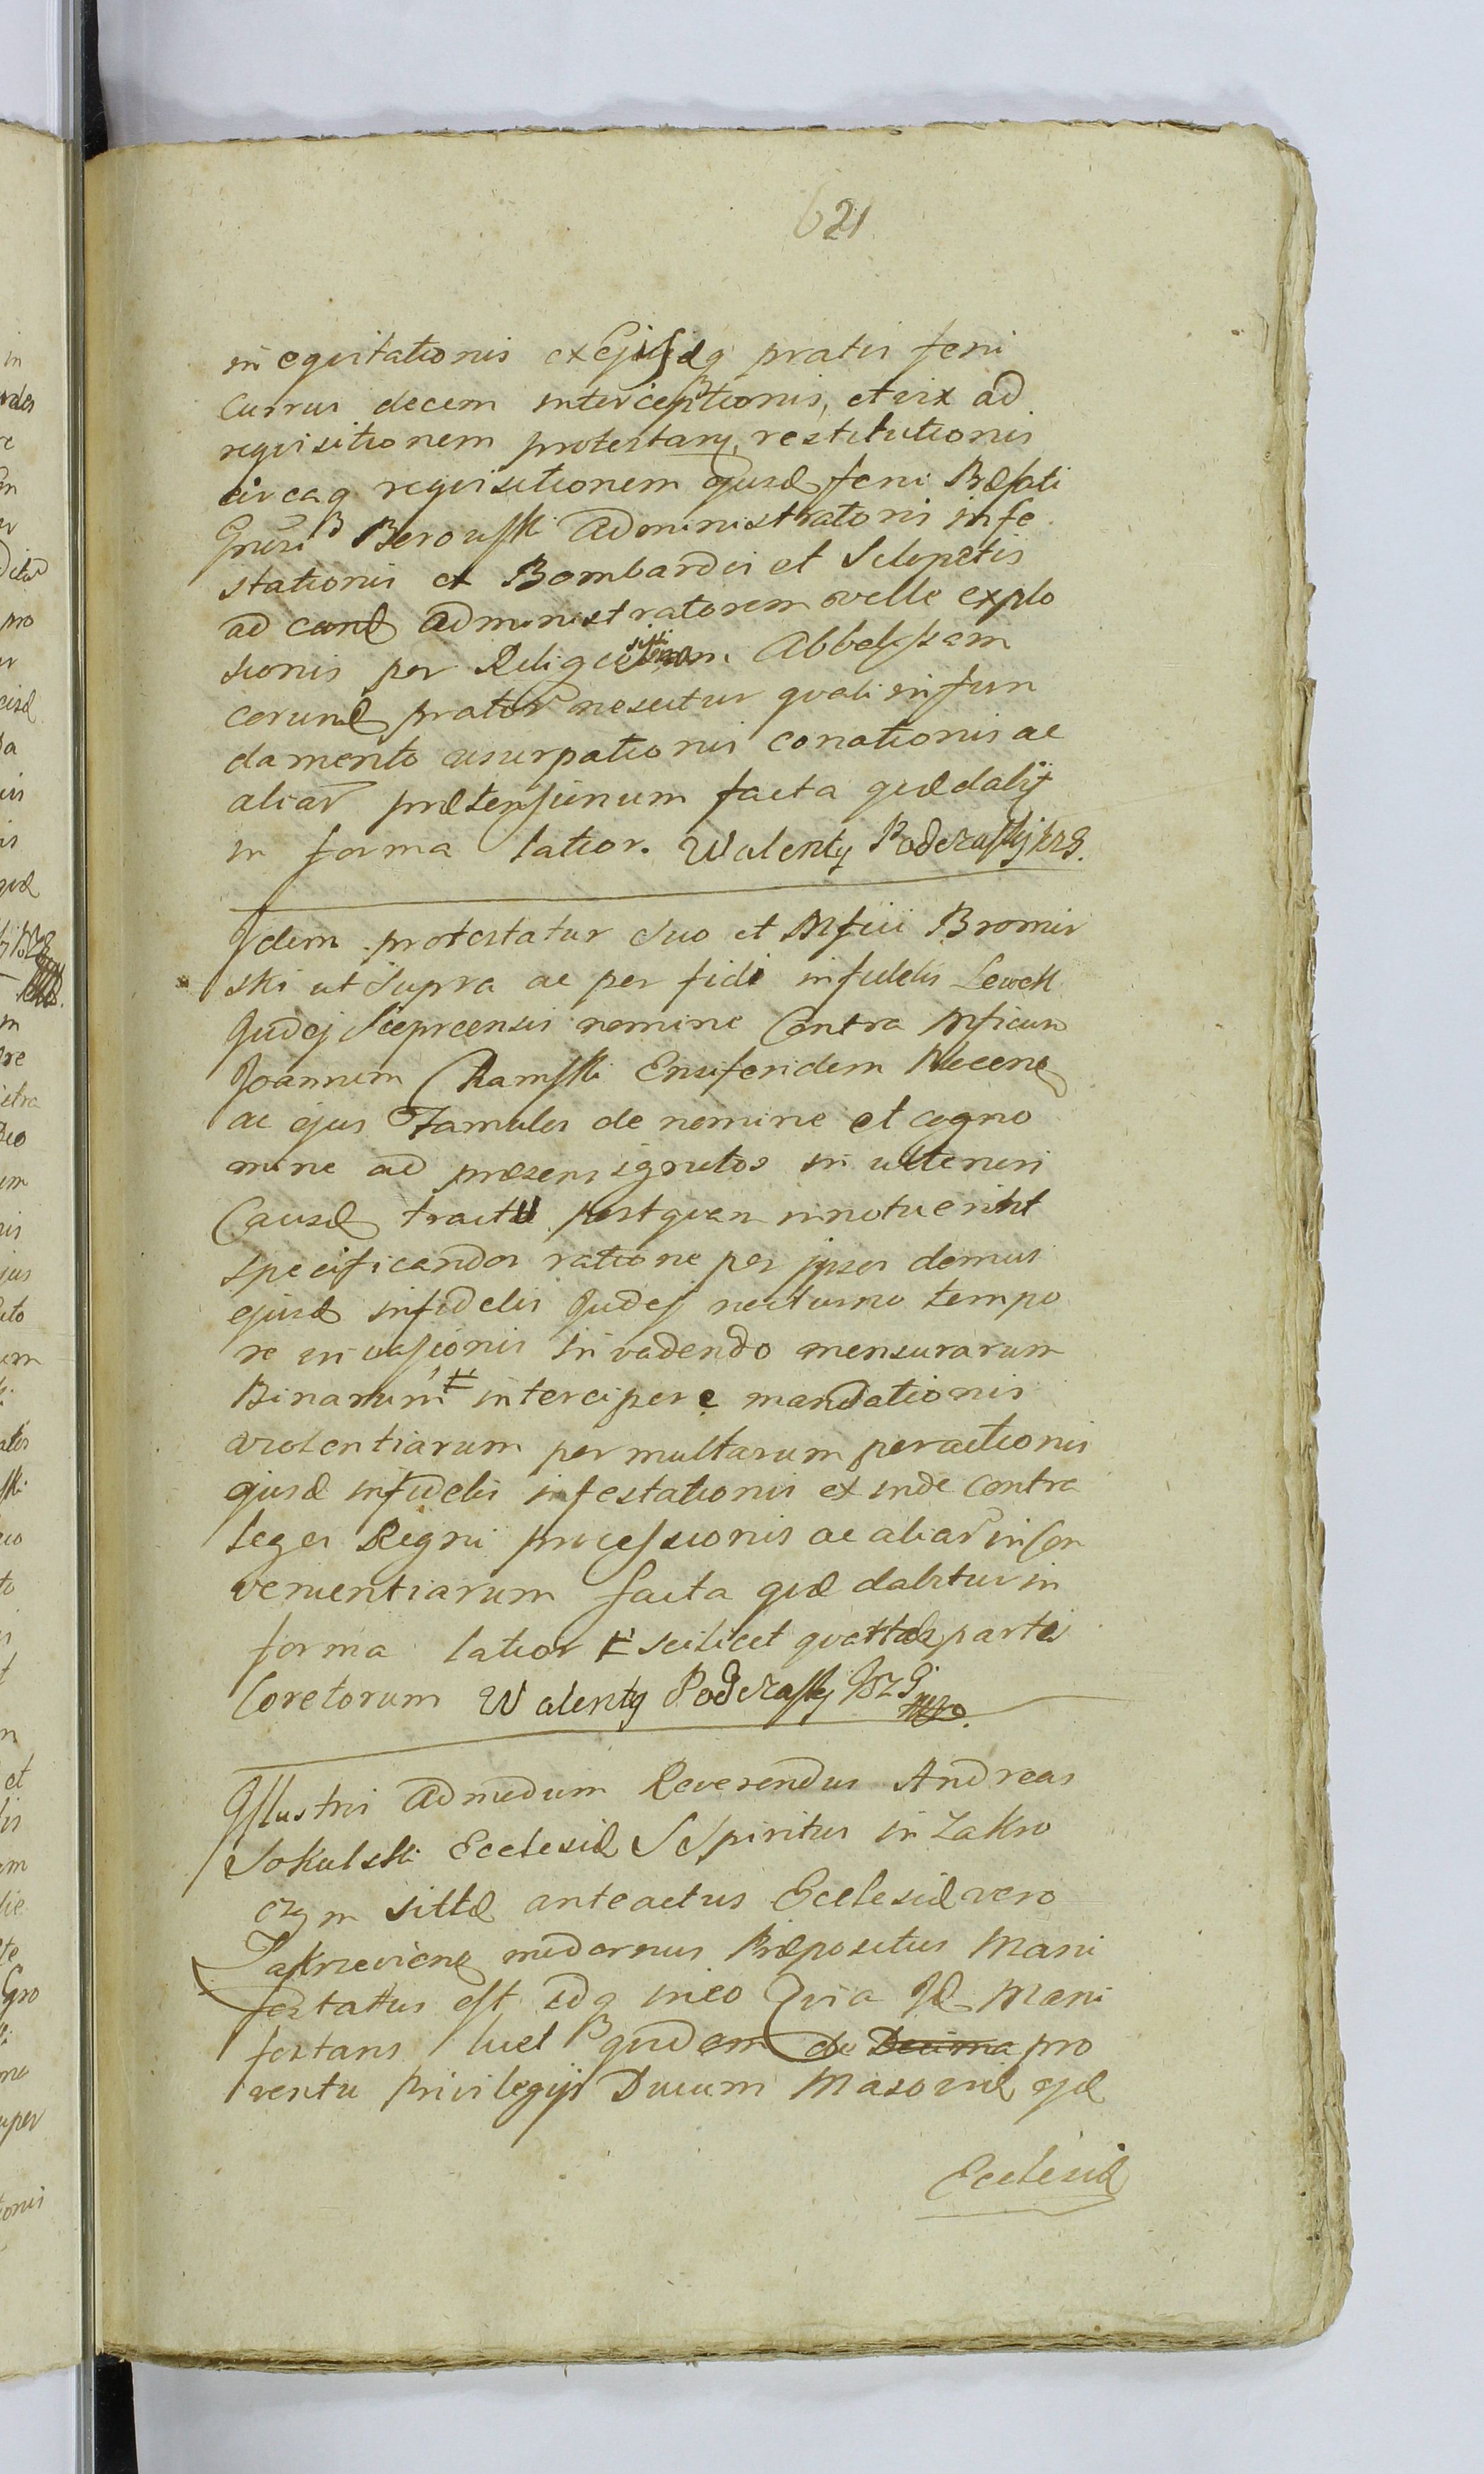 621
in equitationis ex Ejusdeq pratis feni
Currus decem interceptionis, et vix ad
requisitionem protestarij, restitutionis
circaq requisitionem ejusd feni Præfati
Gnrsi Berowski Administratoris infe
stationis et Bombardis et Sclopetis
ad eund Administratorem velle explo
sionis per Religiosissi Abbatissam
corund prator nescitur quali in fun
damento usurpationis conationis ac
aliar prætensionum facta quæ dabit
in forma latior. Walenty Podczaski
Idem protestatur suo et Mfici Bromir
ski ut Supra ac per fidi infidelis Lewek
Judej Sieprcensis nomine Contra Mficum
Joannem Chamski Ensiferidem Plocens
ac ejus Famulos de nomine et cogno
mine ad præsens ignotos in ulteriori
Causæ tractu postquam innotuerint
specificandos ratione per ipsos domus
ejusd infidelis Judej nocturno tempo
re invasionis in vadendo mensurarum
Binarum # intercipere mandationis
violentiarum per multarum peractionis
ejusd infidelis infestationis et inde contra
leges Regni processionis ac aliar incon
venientiarum facta quæ dabitur in
forma latior # scilicet quartas partes
Coretorum Walenty Podczaski
Illustris Admodum Reverendus Andreas
Sokulski Ecclesiæ S Spiritus in Zakro
czym sittæ anteactus Ecclesiæ vero
modernus Præpositus Mani
festatus est idq in eo Quia Id Mani
festans licet quidem de Decima pro
ventu Privilegijs Ducum Masoviæ ejd
Ecclesiæ